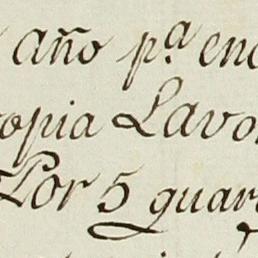 año p.ª enc
opia Lavo
Por 5 guar